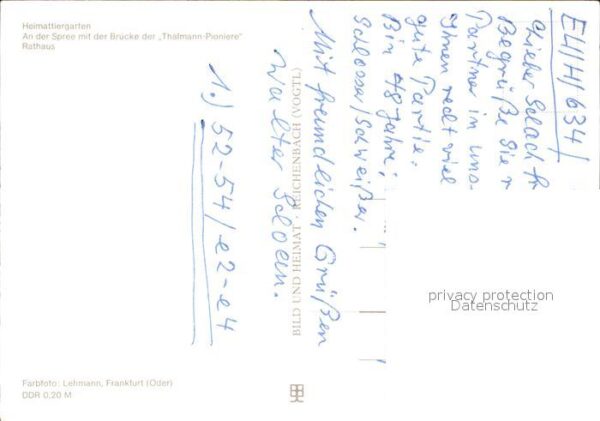 Heimattiergarten
An der Spree mit der Brücke der „Thälmann-Pioniere"
Rathaus
EU/H/634/
Lieber Schachfr
Begrüße Sie
Partner in uns.
Ihnen recht viel
gute Partie.
Bin 48 Jahre,
Schlosser/Schweißer.
Mit freundlichen Grüßen
Walter
1.) 52-54/e2-e4
BILD UND HEIMAT · REICHENBACH (VOGTL)
privacy protection
Datenschutz
Farbfoto: Lehmann, Frankfurt (Oder)
DDR 0,20 M